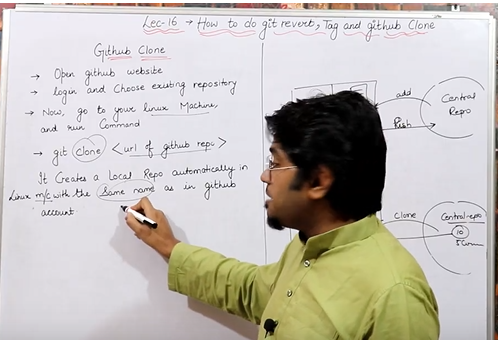 Lec-16 → How to do git reverb, Tag and github Clone
Github Clone
→ Open github website
→ login and Choose existing repository
→ Now, go to your linux Machine,
and run Command
→ git clone <url of github repo>
It Creates a Local Repo automatically in
Linux m/c with the Same name as in github
account
add
Central
Repo
Push
Clone
Central-repo
10